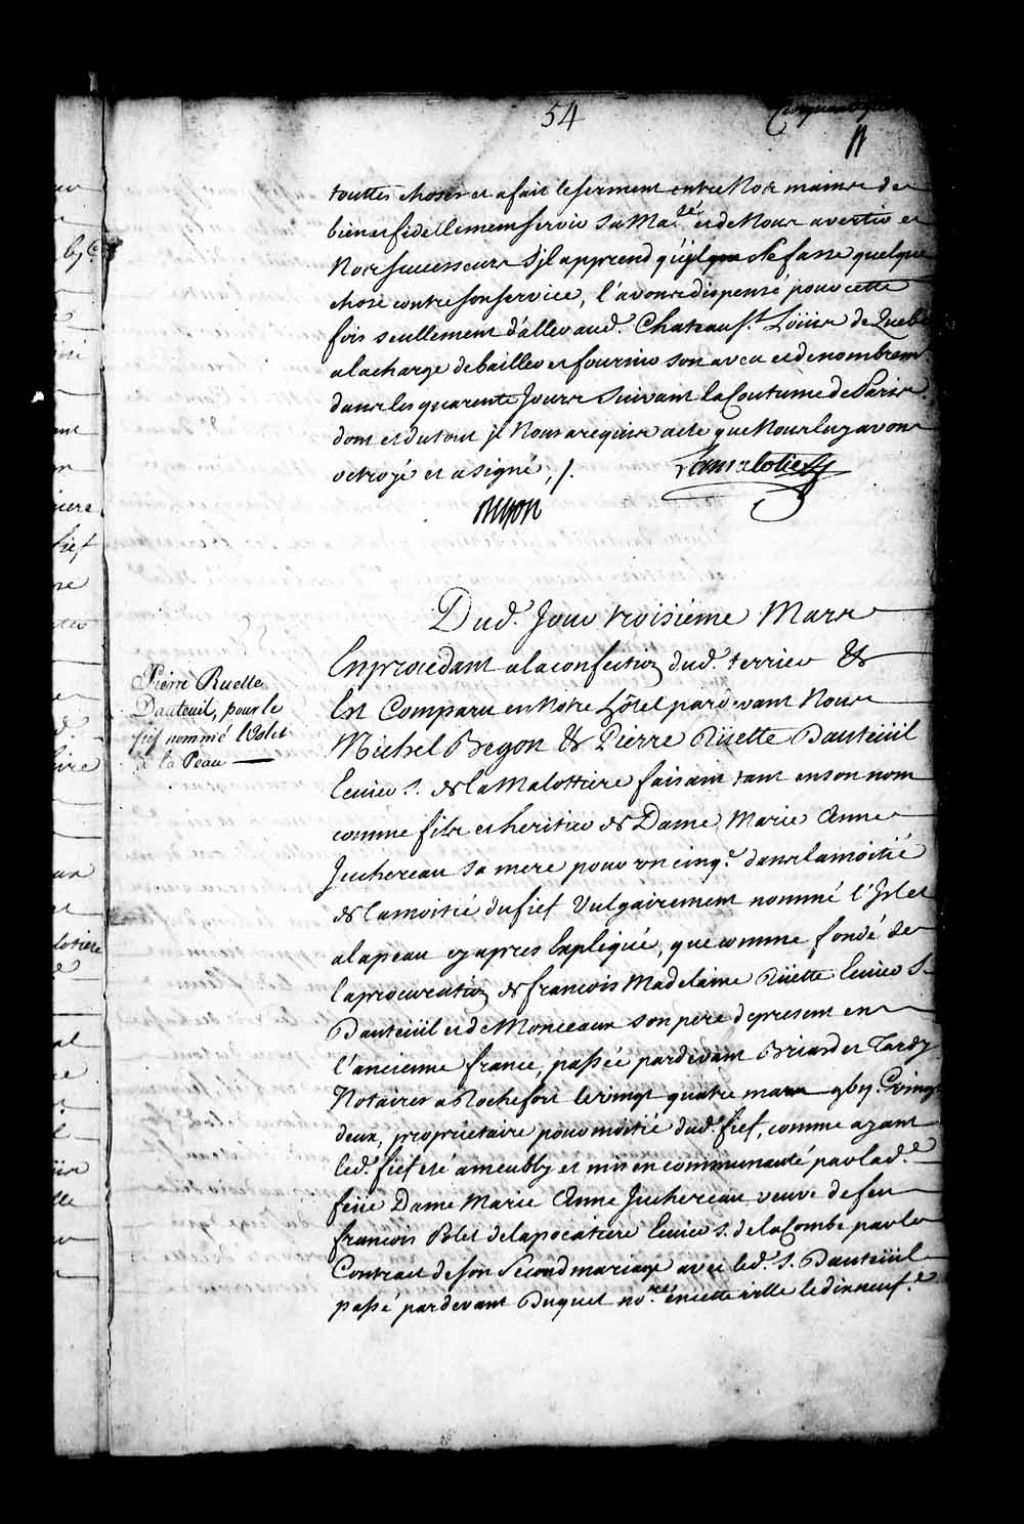 54
touttes choses et a fait le serment entre Nos mains de
bien et fidellement servir Sa Ma.té et de Nous avertir et
Nos successeurs s'jl apprend qu'jl se fasse quelque
chose contre son service, l'avons dispensé pour cette
fois seullement d'aller aud. Chateau S.t Loüis de Quebe
a la charge de bailler et fournir son aveu et denombrem.
dans les quarente Jours suivant la Coutume de Paris.
dont et du tout jl Nous a requis acte que Nous luy avons
octroyé et a signé, /.
Begon
Dud. Jour troisiéme Mars
En procedant a la confection dud. terrier &
Est Comparu en Notre hôtel pardevant Nous
Michel Begon & Pierre Rüette Dauteüil
Pierre Ruette
Dauteuil, pour le
fief nommé l'Volet
à la Peau
Ecuier S. de la Malottiere faisant tant en son nom
comme fils et heritier de Dame Marie Anne
Juchereau sa mere pour un cinq.e dans la moitié
de la moitié du fief Vulgairement nommé l'Islet
a la peau cy apres Expliqué, que comme fondé de
la procuration de francois Madelaine Rüette Ecuier S.
Dauteüil et de Monceaux son pere de present en
l'ancienne france, passée pardevant Briard et Tardy
Notaires a Rochefort le vingt quatre mars
deux, proprietaire pour moitié dud. fief, comme ayant
led. fief eté ameubly et mis en communauté par lad.e
feüe Dame Marie Anne Juchereau veuve de feu
francois Polet de la pocatiere Ecuier S. de la Combe par le
Contract de son Second mariage avec led. S. Dauteüil
passé pardevant Duquet no.re en cette ville le dix neuf.e